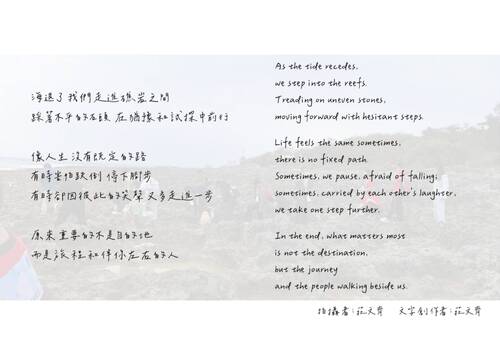 海退了 我們走進礁岩之間
踩著不平的石頭 在猶豫和試探中前行
像人生 沒有既定的路
有時害怕跌倒 停下腳步
有時卻因彼此的笑聲 又多走進一步
原來重要的不是目的地
而是旅程和伴你左右的人
As the tide recedes,
we step into the reefs.
Treading on uneven stones,
moving forward with hesitant steps.
Life feels the same sometimes,
there is no fixed path.
Sometimes, we pause, afraid of falling;
sometimes, carried by each other's laughter,
we take one step further.
In the end, what matters most
is not the destination,
but the journey
and the people walking beside us.
拍攝者：莊文菁 文字創作者：莊文菁